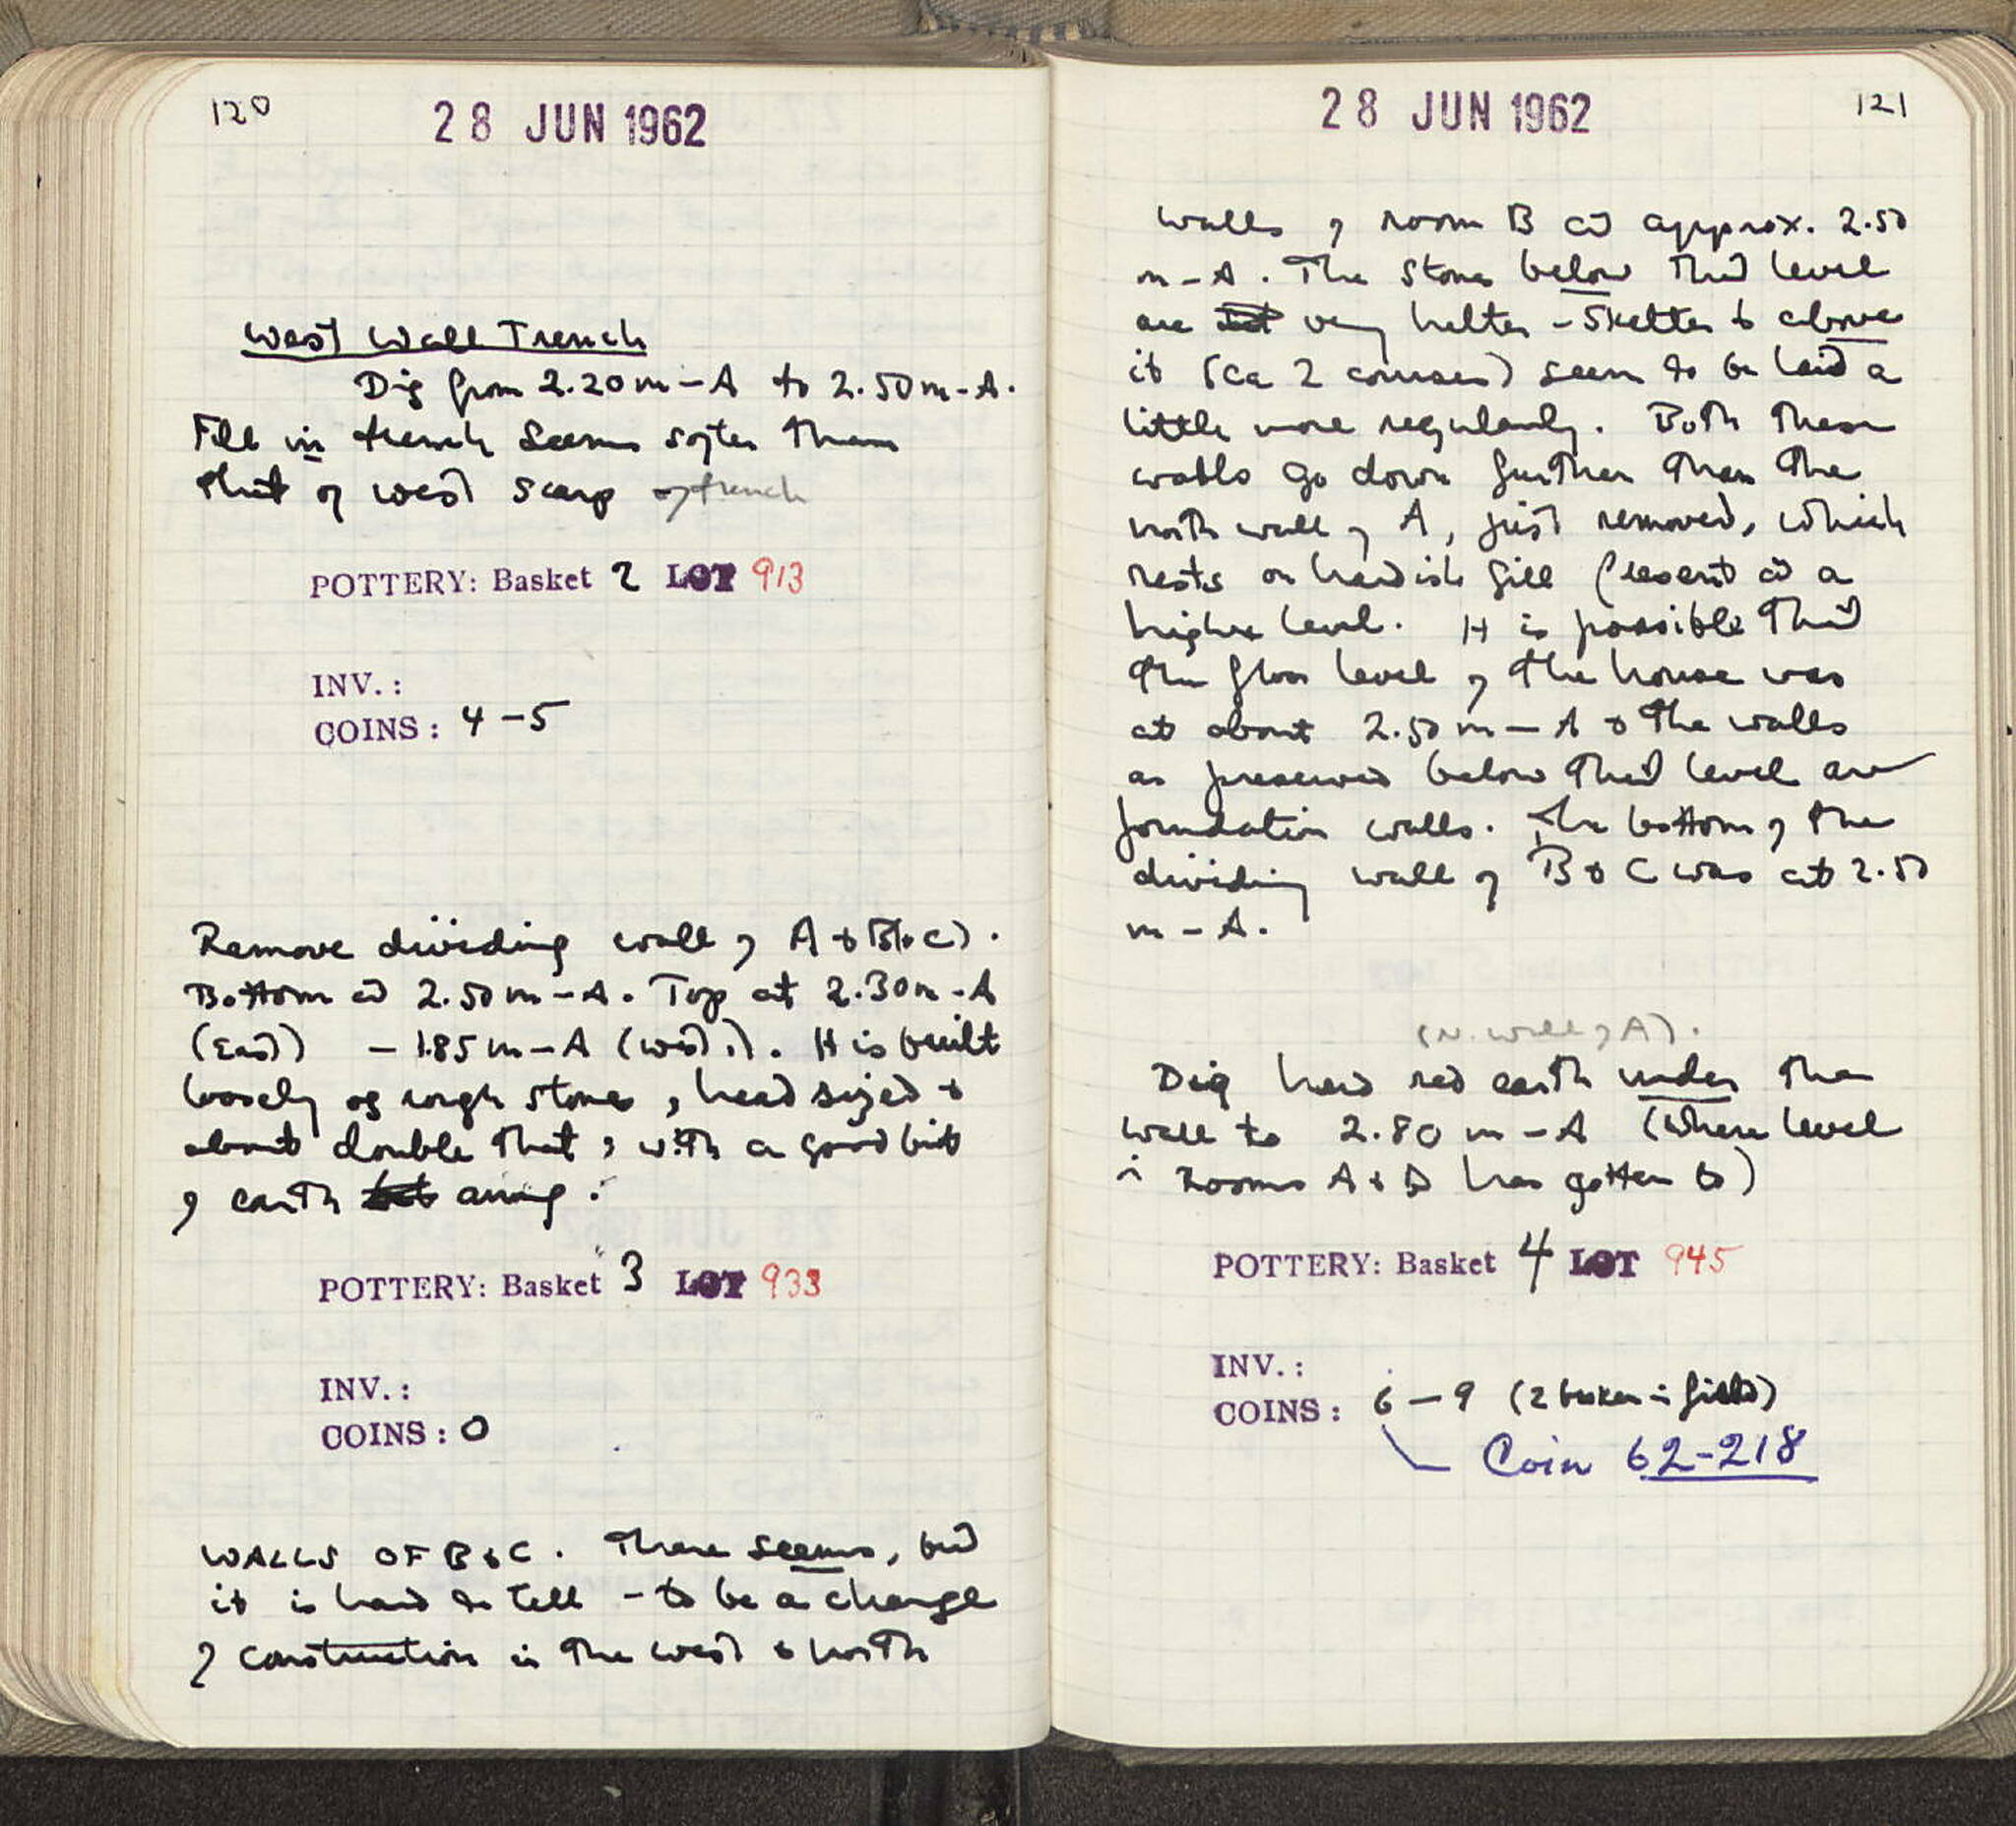 120
28 JUN 1962
West Wall Trench
Dig from 2.20m-A to 2.50m-A.
Fill in trench seems softer than
that of west scarp of trench
POTTERY: Basket 2 LOT 913
INV.:
COINS: 4-5
Remove dividing wall of A & B(&C).
Bottom at 2.50m-A. Top at 2.30m-A
(East) - 1.85m-A (west). It is built
loosely of rough stones, head sized &
about double that, with a good bit
of earth among.
POTTERY: Basket 3 LOT 933
INV.:
COINS: 0
WALLS OF B & C. There seems, but
it is hard to tell - to be a change
of construction in the west & north
28 JUN 1962
121
walls of room B at approx. 2.50
m-A. The stones below that level
are very helter-skelter & above
it (ca 2 courses) seem to be laid a
little more regularly. Both these
walls go down further than the
north wall of A, just removed, which
rests on hardish fill at a
higher level. It is possible that
the floor level of the house was
at about 2.50m-A & the walls
as preserved below that level are
foundation walls. The bottom of the
dividing wall of B & C was at 2.50
m-A.
(N. wall of A).
Dig hard red earth under the
wall to 2.80m-A (where level
in Rooms A & D has gotten to)
POTTERY: Basket 4 LOT 945
INV.:
COINS: 6-9 (2 broken in field)
Coin 62-218